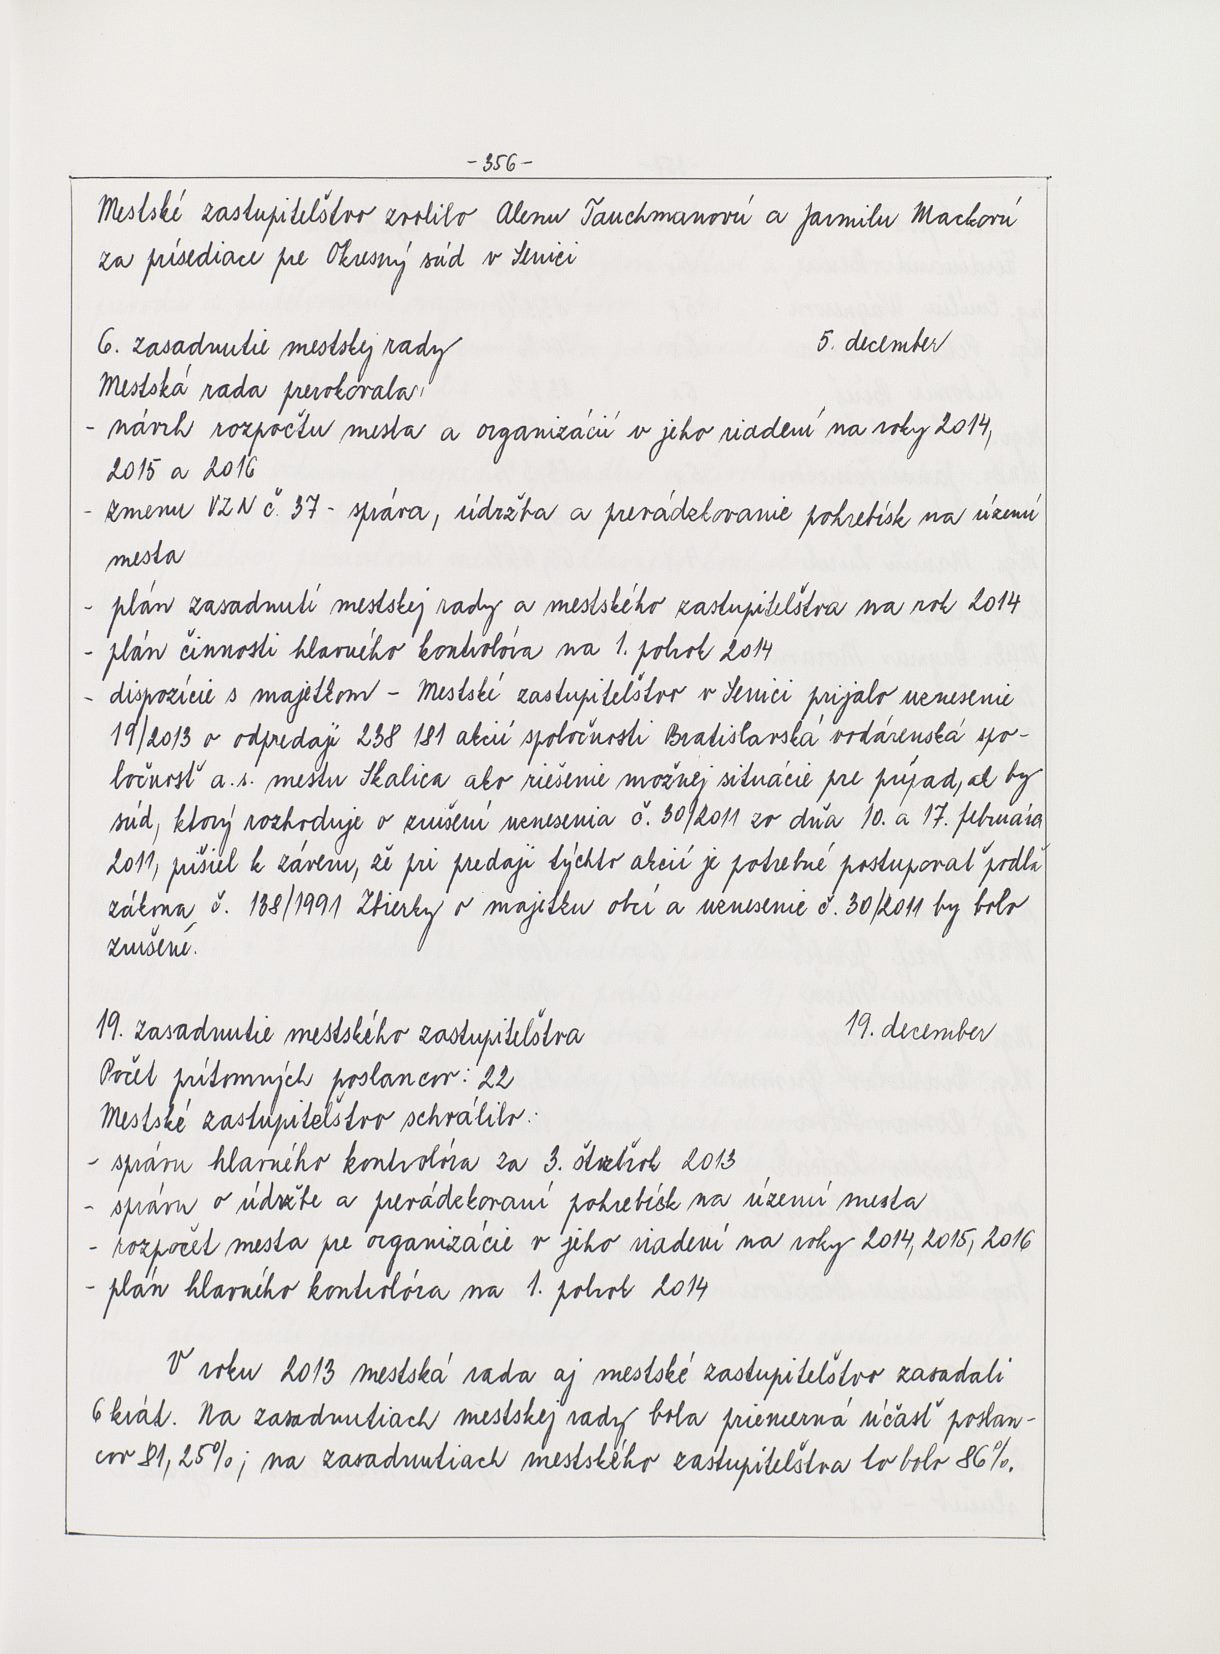 - 356 -
Mestské zastupiteľstvo zvolilo Alenu Tauchmanovú a Jarmilu Mackovú
za prísediace pre Okresný súd v Senici
6. zasadnutie mestskej rady 5. december
Mestská rada prerokovala:
- návrh rozpočtu mesta a organizácií v jeho riadení na roky 2014,
2015 a 2016
- zmenu VZN č. 37 - správa, údržba a prevádzkovanie pohrebísk na území
mesta
- plán zasadnutí mestskej rady a mestského zastupiteľstva na rok 2014
- plán činnosti hlavného kontrolóra na 1. polrok 2014
- dispozície s majetkom - Mestské zastupiteľstvo v Senici prijalo uznesenie
19/2013 o odpredaji 238 181 akcií spoločnosti Bratislavská vodárenská spo-
ločnosť a.s. mestu Skalica ako riešenie možnej situácie pre prípad, ak by
súd, ktorý rozhoduje o zrušení uznesenia č. 30/2011 zo dňa 10. a 17. februára
2011, prišiel k záveru, že pri predaji týchto akcií je potrebné postupovať podľa
zákona č. 138/1991 Zbierky o majetku obcí a uznesenie č. 30/2011 by bolo
zrušené.
19. zasadnutie mestského zastupiteľstva 19. december
Počet prítomných poslancov: 22
Mestské zastupiteľstvo schválilo:
- správu hlavného kontrolóra za 3. štvrťrok 2013
- správu o údržbe a prevádzkovaní pohrebísk na území mesta
- rozpočet mesta pre organizácie v jeho riadení na roky 2014, 2015, 2016
- plán hlavného kontrolóra na 1. polrok 2014
V roku 2013 mestská rada aj mestské zastupiteľstvo zasadali
6 krát. Na zasadnutiach mestskej rady bola priemerná účasť poslan-
cov 81,25%; na zasadnutiach mestského zastupiteľstva to bolo 86%.